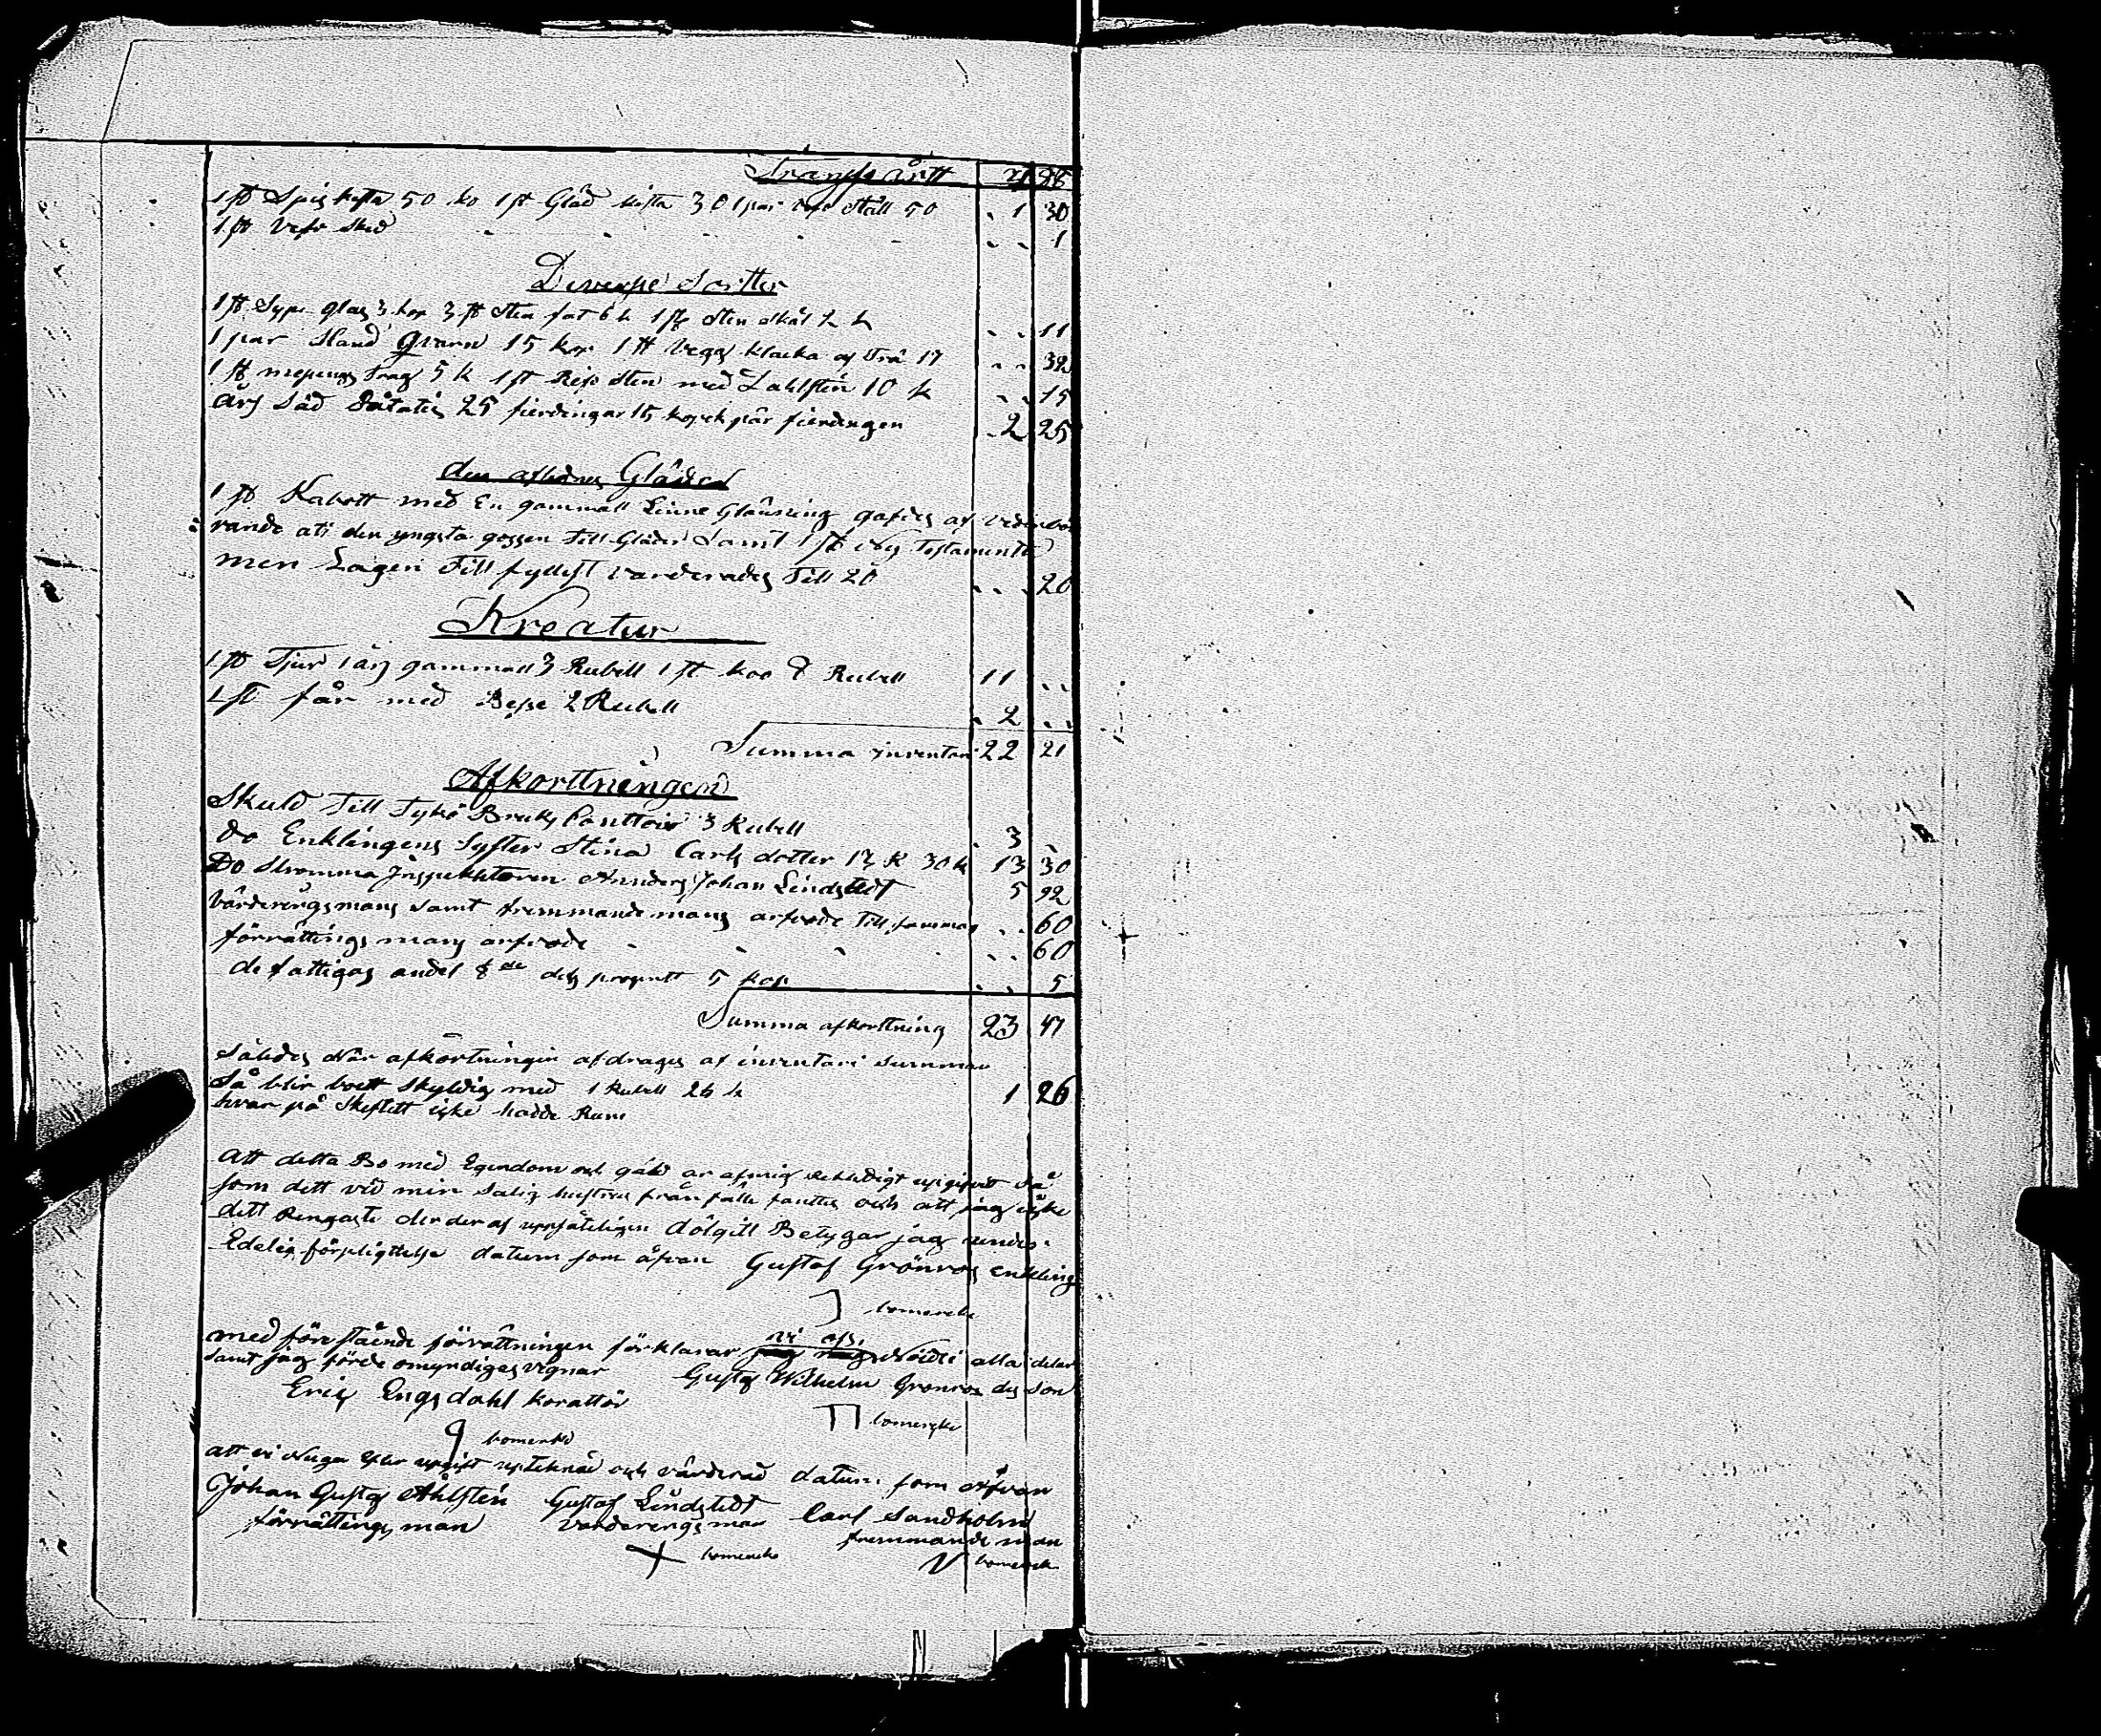 Transpårtt
1 st Spis kista 50 ko 1 st Gläd kista 30 1 par Ställ 50 . 1 30
1 st Vefv sked - - - - . . 1
Diverse Sortter
1 st Syps glas 3 kop 3 st Sten fat 6 k 1 st Sten skål 2 k . . 11
1 par Hand Qvarn 15 kop 1 st Vegg klacka af Trä 17 . . 32
1 st mesings 5 k 1 st Sten med 10 k . . 15
års säd Påtatis 25 fierdingar 15 kopek pär fierdingen . 2 25
den aflednes Gläder
1 st Kabott med En gammall Linne Gläning gafves af
rande åti den yngsta gossen Till Gläder Samt 1 st Testamente
men Lagen Till fyllest värderades Till 20 . . 20
Kreatur
1 st Tjur 1 års gammall 3 Rubell 1 st koo 8 Rubell 11 . .
1 st får med 2 Rubell . 2 . .
Summa inventari 22 21
Afkorttningen
Skuld Till Tykö Bruks Conttoir 3 Rubell . 3 .
do Enklingens Syster Stina Carls dotter 13 R 30 k 13 30
Do Stromma Jnspekktoren Annders Johan Lindstedt 5 92
Värderingsmans samt fremmande mans arfvode Till samman . . 60
förrättings mans arfvode - - - . . . 60
de fattigas andel 1/8 de dels prosentt 5 kop . . 5
Summa afkorttning 23 47
Således När afkortningen afdrages af inventari Summan
Så blir boett Skyldig med 1 Rubell 26 k 1 26
hvar på Skiftett icke hadde Rum
Att detta Bo med Egendom och gäld är af mig upgifvet så
som dett vid min Salig hustrus från fälle fanttes och att jag icke
dett Ringaste der deraf uppsåteligen dolgitt Betygar jag under
Edelig förpligttelse datum som åfvan Gustaf Grönros enkling
bomerke
med före stående förrättningen förklarar vi oss Nöide i alla delar
samt jag förde omyndiges vegnar Gustaf Wilhelm Grönros des Son
Eric Engsdahl korattor
bomerke
bomerke
att vi Noga efter upgift uptcknad och värderad datum som åfvan
Johan Gustaf Åhlstén Gustaf Lindstedt Carl Sandholm
förrättings man Värderings man fremmande man
bomerke bomerk